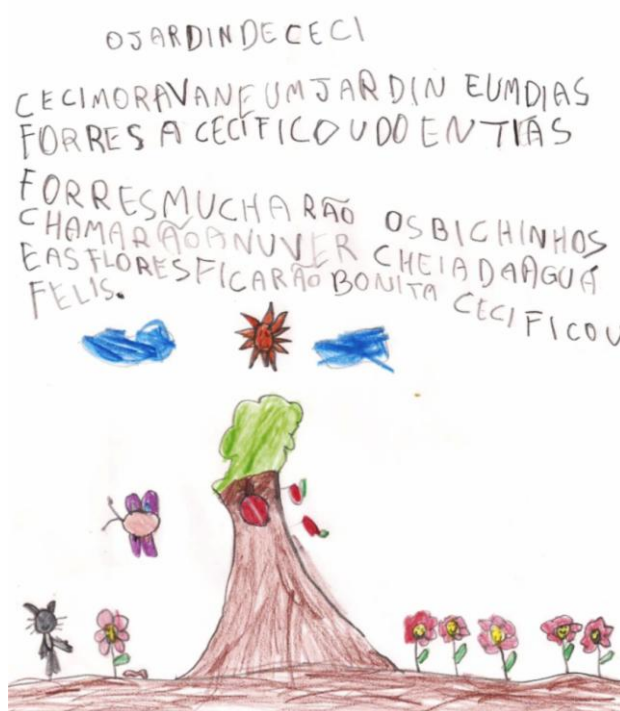 OJARDINDECECI
CECIMORAVANEUMJARDIN EUMDIAS
FORRES A CECIFICOUDOENTIAS
FORRESMUCHARÃO OSBICHINHOS
CHAMARÃOANUVER CHEIADAAGUA
EASFLORESFICARÃOBONITA CECIFICOU
FELIS.